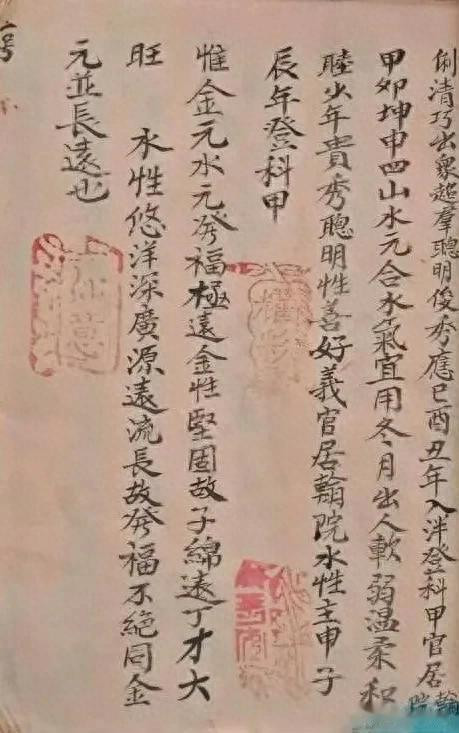 俐清巧出衆超羣聰明俊秀應巳酉丑年入泮登科甲官居翰院
甲卯坤申四山水元合水氣宜用冬月出人軟弱温柔和
睦少年貴秀聰明性善好義官居翰院水性主申子
辰年登科甲
惟金元水元發福極遠金性堅固故子綿遠丁才大
旺　水性悠洋深廣源遠流長故發福不絕同金
元並長遠也